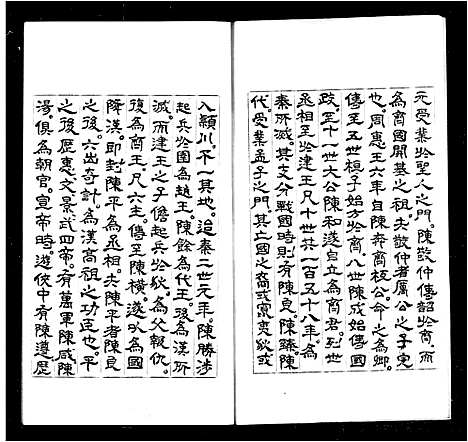 元受業於聖人之門。陳敬仲傳韶於齊。而
為齊國開基之祖。夫敬仲者厲公之子完
也。周惠王六年自陳奔齊。桓公命之為卿。
傳至五世桓子始方於齊。八世陳成始傳國
政。至十一世大公陳和遂自立為齊君。列世
丞相王於建王凡十世共一百五十八年。為
秦所滅。其支分戰國時則有陳良。陳臻陳
代受業孟子之門。其亡國之裔或實變狄或
入潁川。不一其地。迨秦二世元年。陳勝涉
起兵於圉為趙王。陳餘為代王。後為漢所
滅。而建王之子儋起兵於狄。為父報仇。
後為齊王。凡六主。傳至陳橫。遂以為國
降漢。即封陳平為丞相。夫陳平者陳良
之後。六出奇計。為漢高祖之功臣也。平
之後歷惠文景武四帝。有萬軍陳咸陳
湯。俱為朝官。宣帝時。遊俠中有陳遵歷